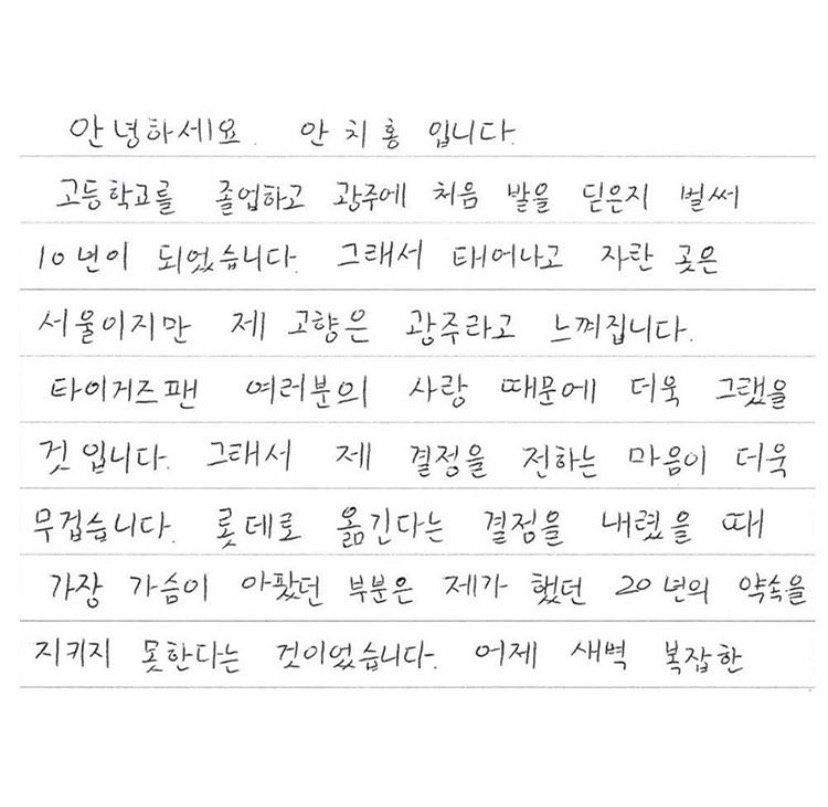 안녕하세요. 안치홍 입니다.
고등학교를 졸업하고 광주에 처음 발을 딛은지 벌써
10년이 되었습니다. 그래서 태어나고 자란 곳은
서울이지만 제 고향은 광주라고 느껴집니다.
타이거즈팬 여러분의 사랑 때문에 더욱 그랬을
것 입니다. 그래서 제 결정을 전하는 마음이 더욱
무겁습니다. 롯데로 옮긴다는 결정을 내렸을 때
가장 가슴이 아팠던 부분은 제가 했던 20년의 약속을
지키지 못한다는 것이었습니다. 어제 새벽 복잡한